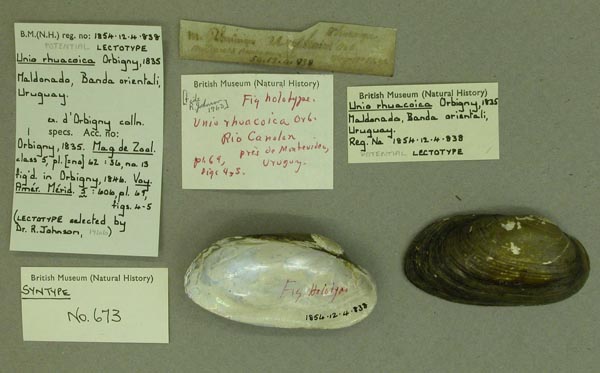 B.M.(N.H.) reg. no: 1854.12.4.838
POTENTIAL LECTOTYPE
Unio rhuacoica Orbigny, 1835
Maldonado, Banda orientali,
Uruguay.
ex. d'Orbigny colln.
specs. Acc. no:
Orbigny, 1835. Mag. de Zool.
class 5, pl. [sno] 62 : 36, no 13
fig'd. in Orbigny, 1846. Voy.
Amér. Mérid. 5 : 606, pl. 69,
figs. 4-5
(LECTOTYPE selected by
Dr. R. Johnson,
838
British Museum (Natural History)
Fig holotype.
Unio rhuacoica Orb.
Rio Canelon
près de Montevideo,
Uruguay.
pl. 69,
figs 4,5.
British Museum (Natural History)
Unio rhuacoica Orbigny, 1835
Maldonado, Banda orientali,
Uruguay.
Reg. No 1854.12.4.838
POTENTIAL LECTOTYPE
British Museum (Natural History)
SYNTYPE
No. 673
Fig Holotype
1854.12.4.838